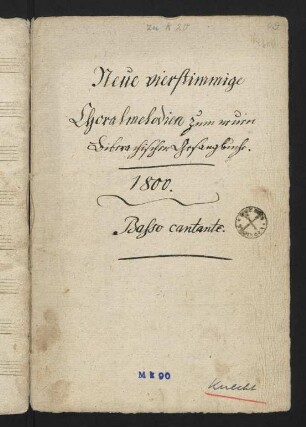 zu K 28
Neue vierstimmige
Choralmelodien zum neuen
Biberachischen Gesangbuche.
1800.
Basso cantante.
M k 90
Knecht